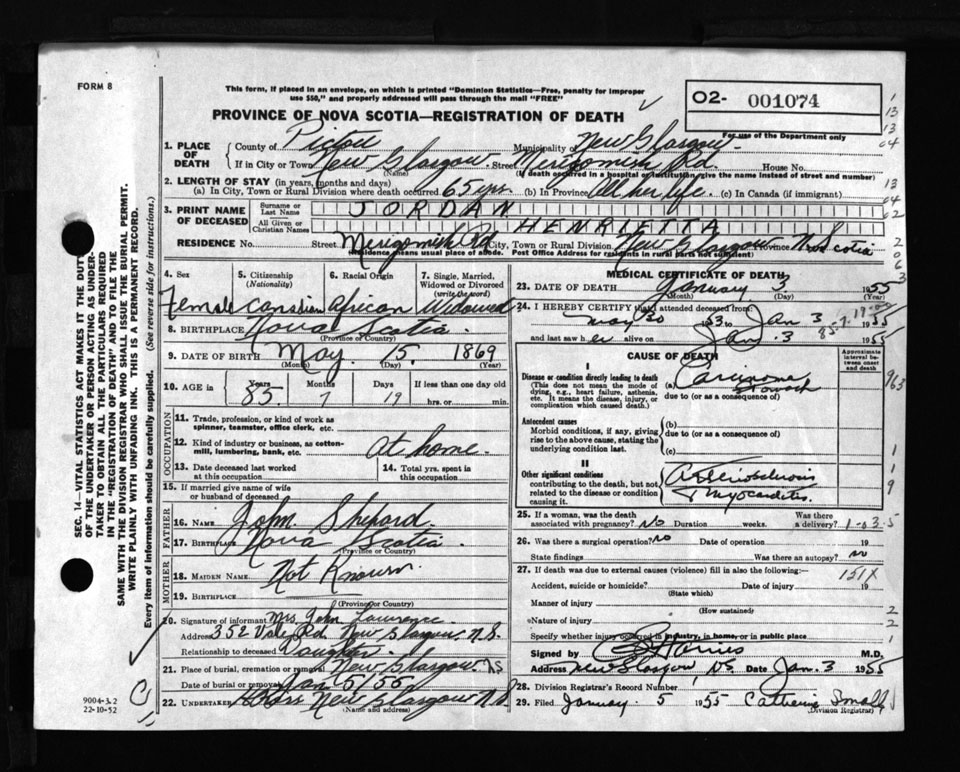 FORM 8
This form, if placed in an envelope, on which is printed "Dominion Statistics—Free, penalty for improper
use $50," and properly addressed will pass through the mail "FREE"
PROVINCE OF NOVA SCOTIA—REGISTRATION OF DEATH
O2- 001074
For use of the Department only
1. PLACE OF DEATH
County of Pictou Municipality of New Glasgow
If in City or Town New Glasgow Street Merigomish Rd House No.
(Name) (If death occurred in a hospital or institution give the name instead of street and number)
2. LENGTH OF STAY (in years, months and days)
(a) In City, Town or Rural Division where death occurred 65 yrs. (b) In Province All her life. (c) In Canada (if immigrant)
3. PRINT NAME OF DECEASED
Surname or Last Name JORDAN
All Given or Christian Names HENRIETTA
RESIDENCE No. Street Merigomish Rd City, Town or Rural Division New Glasgow Province N. Scotia
(Residence means usual place of abode. Post Office Address for residents in rural parts not sufficient)
4. Sex 5. Citizenship (Nationality) 6. Racial Origin 7. Single, Married, Widowed or Divorced (write the word)
Female Canadian African Widowed
8. BIRTHPLACE Nova Scotia
(Province or Country)
9. DATE OF BIRTH May 15 1869
(Month) (Day) (Year)
10. AGE in Years Months Days If less than one day old
85 7 19 hrs. or min.
OCCUPATION
11. Trade, profession, or kind of work as spinner, teamster, office clerk, etc.
12. Kind of industry or business, as cotton-mill, lumbering, bank, etc. at home.
13. Date deceased last worked at this occupation
14. Total yrs. spent in this occupation
15. If married give name of wife or husband of deceased
FATHER
16. NAME John Shepard
17. BIRTHPLACE Nova Scotia
(Province or Country)
MOTHER
18. MAIDEN NAME Not Known
19. BIRTHPLACE
(Province or Country)
20. Signature of informant Mrs. John Lawrence
Address 352 Vale Rd. New Glasgow N.S.
Relationship to deceased Daughter
21. Place of burial, cremation or removal New Glasgow NS
Date of burial or removal Jan 5/55
22. UNDERTAKER New Glasgow N.S.
(Name and address)
MEDICAL CERTIFICATE OF DEATH
23. DATE OF DEATH January 3 1955
(Month) (Day) (Year)
24. I HEREBY CERTIFY that I attended deceased from:
May 30 1953 to Jan 3 1955
and last saw her alive on Jan. 3 1955
CAUSE OF DEATH
Approximate interval between onset and death
I
Disease or condition directly leading to death (a) Carcinoma Stomach
(This does not mean the mode of dying, e.g., heart failure, asthenia, etc. It means the disease, injury, or complication which caused death.)
due to (or as a consequence of)
Antecedent causes
Morbid conditions, if any, giving rise to the above cause, stating the underlying condition last.
(b)
due to (or as a consequence of)
(c)
II
Other significant conditions contributing to the death, but not related to the disease or condition causing it.
Arteriosclerosis
+ Myocarditis.
25. If a woman, was the death associated with pregnancy? No Duration weeks. Was there a delivery?
26. Was there a surgical operation? No Date of operation 19
State findings Was there an autopsy? No
27. If death was due to external causes (violence) fill in also the following:
151X
Accident, suicide or homicide? Date of injury 19
(State which)
Manner of injury
(How sustained)
Nature of injury
Specify whether injury occurred in industry, in home, or in public place
Signed by M.D.
Address New Glasgow NS Date Jan. 3 1955
28. Division Registrar's Record Number 1
29. Filed January 5 1955 Catherine Small
(Division Registrar)
SEC. 14—VITAL STATISTICS ACT MAKES IT THE DUTY
OF THE UNDERTAKER OR PERSON ACTING AS UNDER-
TAKER TO OBTAIN ALL THE PARTICULARS REQUIRED
IN THE "REGISTRATION OF DEATH" AND TO FILE THE
SAME WITH THE DIVISION REGISTRAR WHO SHALL ISSUE THE BURIAL PERMIT.
WRITE PLAINLY WITH UNFADING INK. THIS IS A PERMANENT RECORD.
Every item of information should be carefully supplied. (See reverse side for instructions.)
9004-3.2
22-10-52